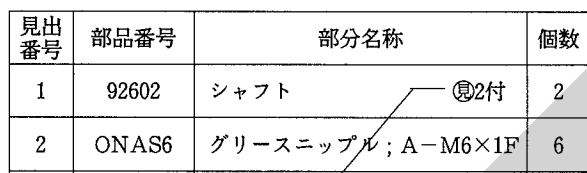 見出番号 部品番号 部分名称 個数
1 92602 シャフト ㊂2付 2
2 ONAS6 グリースニップル；A－M6×1F 6